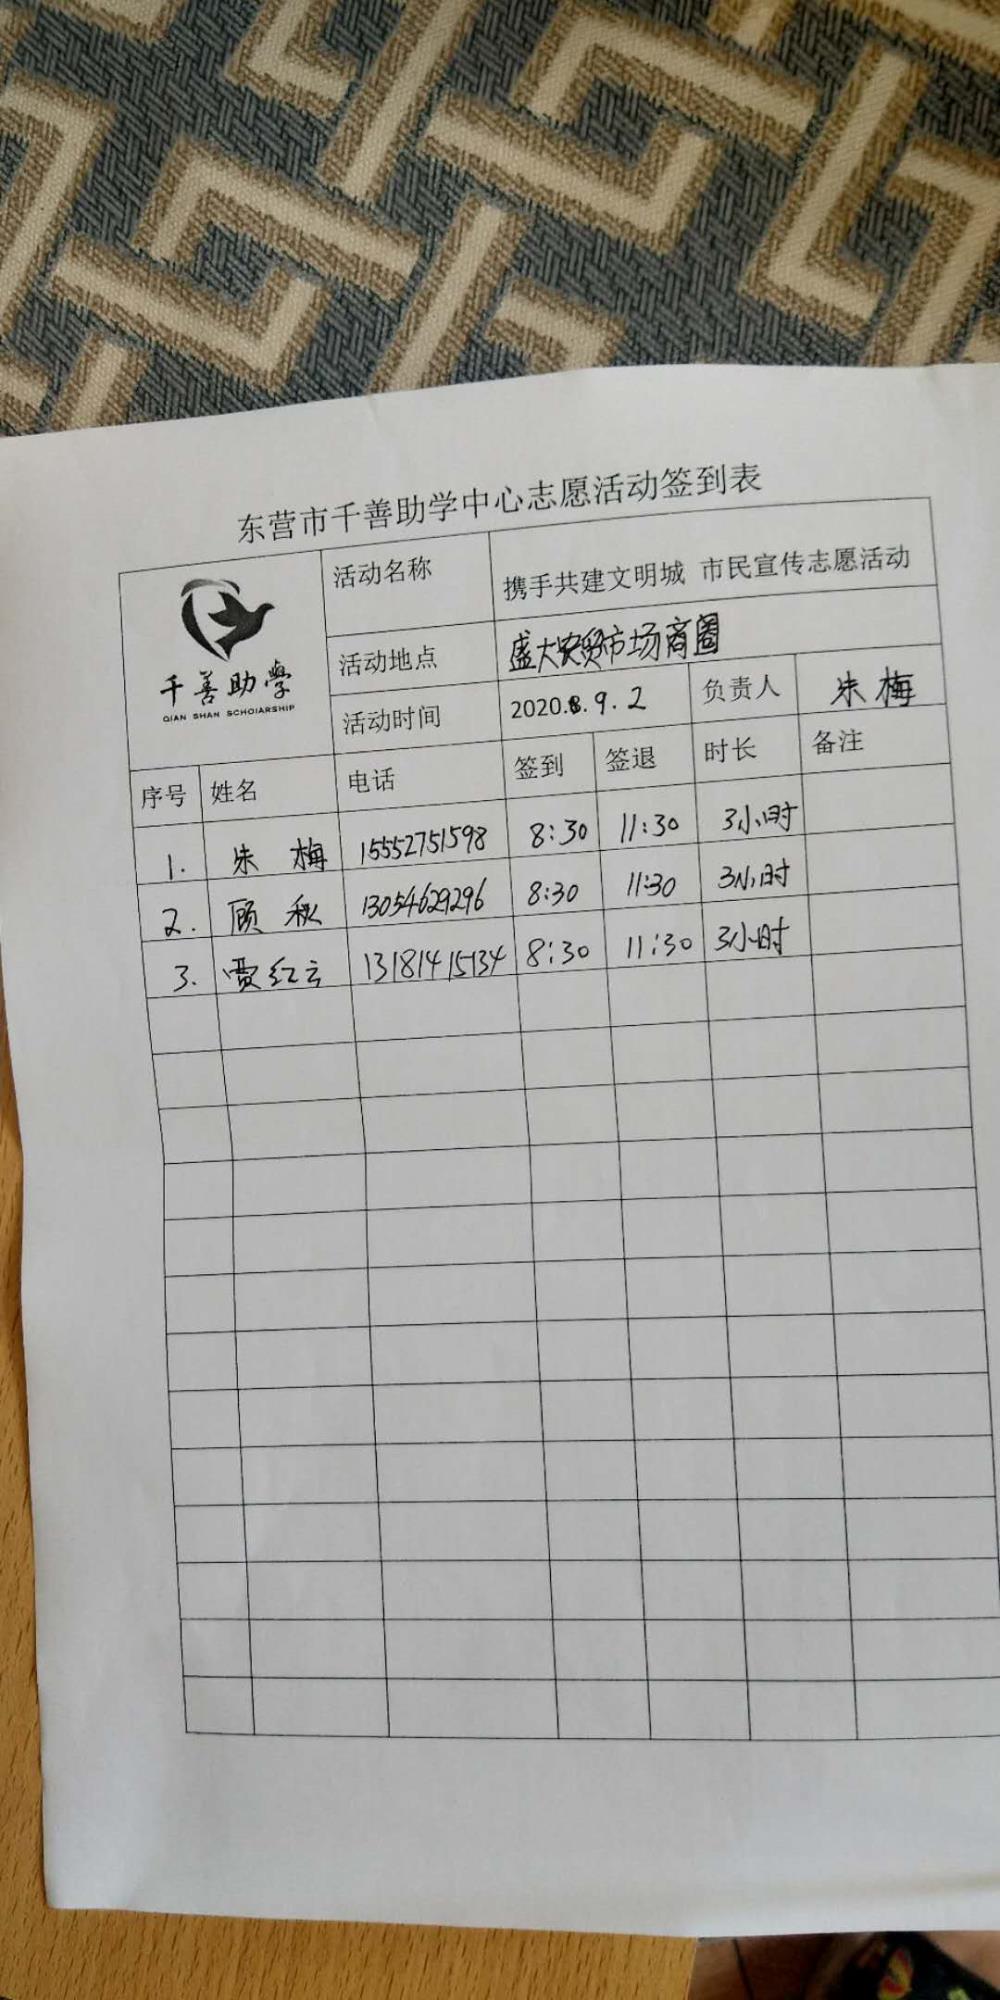 东营市千善助学中心志愿活动签到表
千善助學
QIAN SHAN SCHOIARSHIP
活动名称 携手共建文明城 市民宣传志愿活动
活动地点 盛大农贸市场商圈
活动时间 2020.8.9.2 负责人 朱梅
序号 姓名 电话 签到 签退 时长 备注
1. 朱梅 15552751598 8:30 11:30 3小时
2. 顾秋 13054629296 8:30 11:30 3小时
3. 贾红云 13181415134 8:30 11:30 3小时